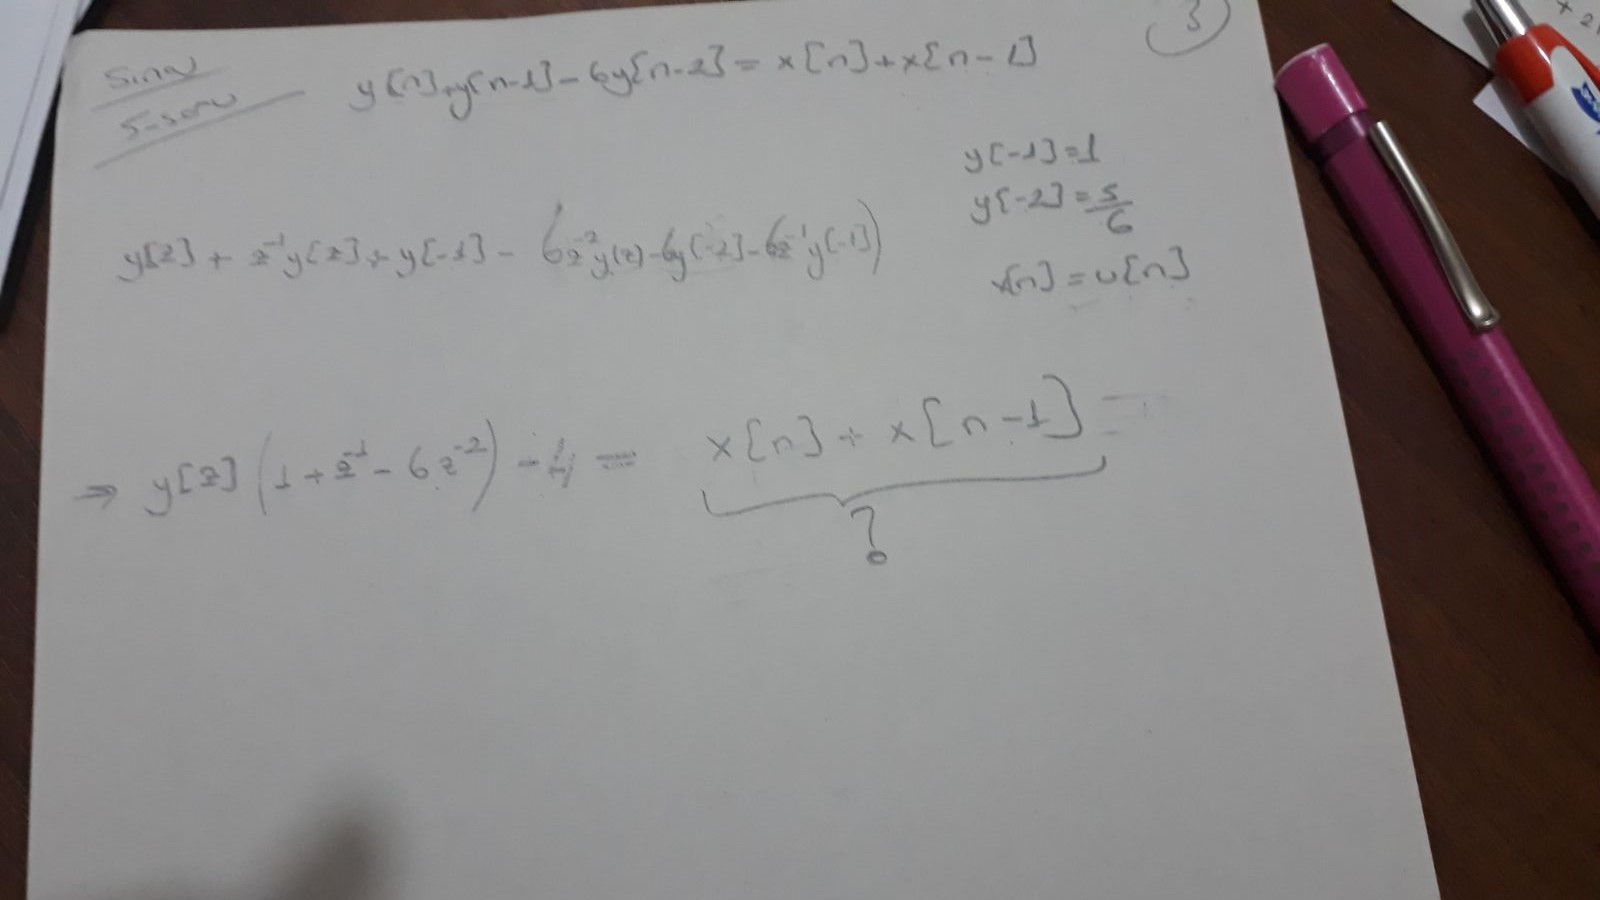 3
Sınav
5. soru
y[n]+y[n-1]-6y[n-2]= x[n]+x[n-1]
y[-1]=1
y[-2]=5/6
x[n]=u[n]
y[z] + z⁻¹y[z] + y[-1] - 6z⁻²y(z)-6y[-2]-6z⁻¹y[-1])
⇒ y[z] (1+z⁻¹-6z⁻²) - 4 = x[n] + x[n-1] =
?